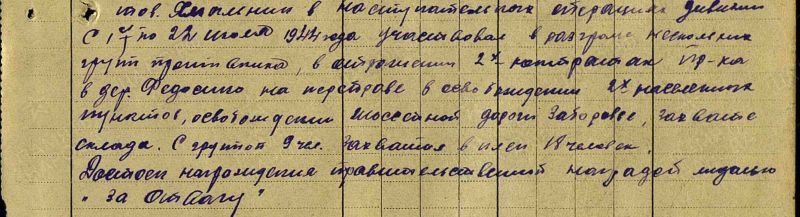 тов. Хмыленин в наступательных операциях дивизии
С 1/7 по 22 июля 1944 года участвовал в разгроме нескольких
групп противника, в отражении 2х контратак пр-ка
в дер. Федосино на перепр в освобождении 2х населенных
пунктов, освобождении шоссейной дороги Заборовье, захвате
склада. С группой 9 чел. захватил в плен 18 человек.
Достоен награждения правительственной наградой медалью
"За Отвагу"